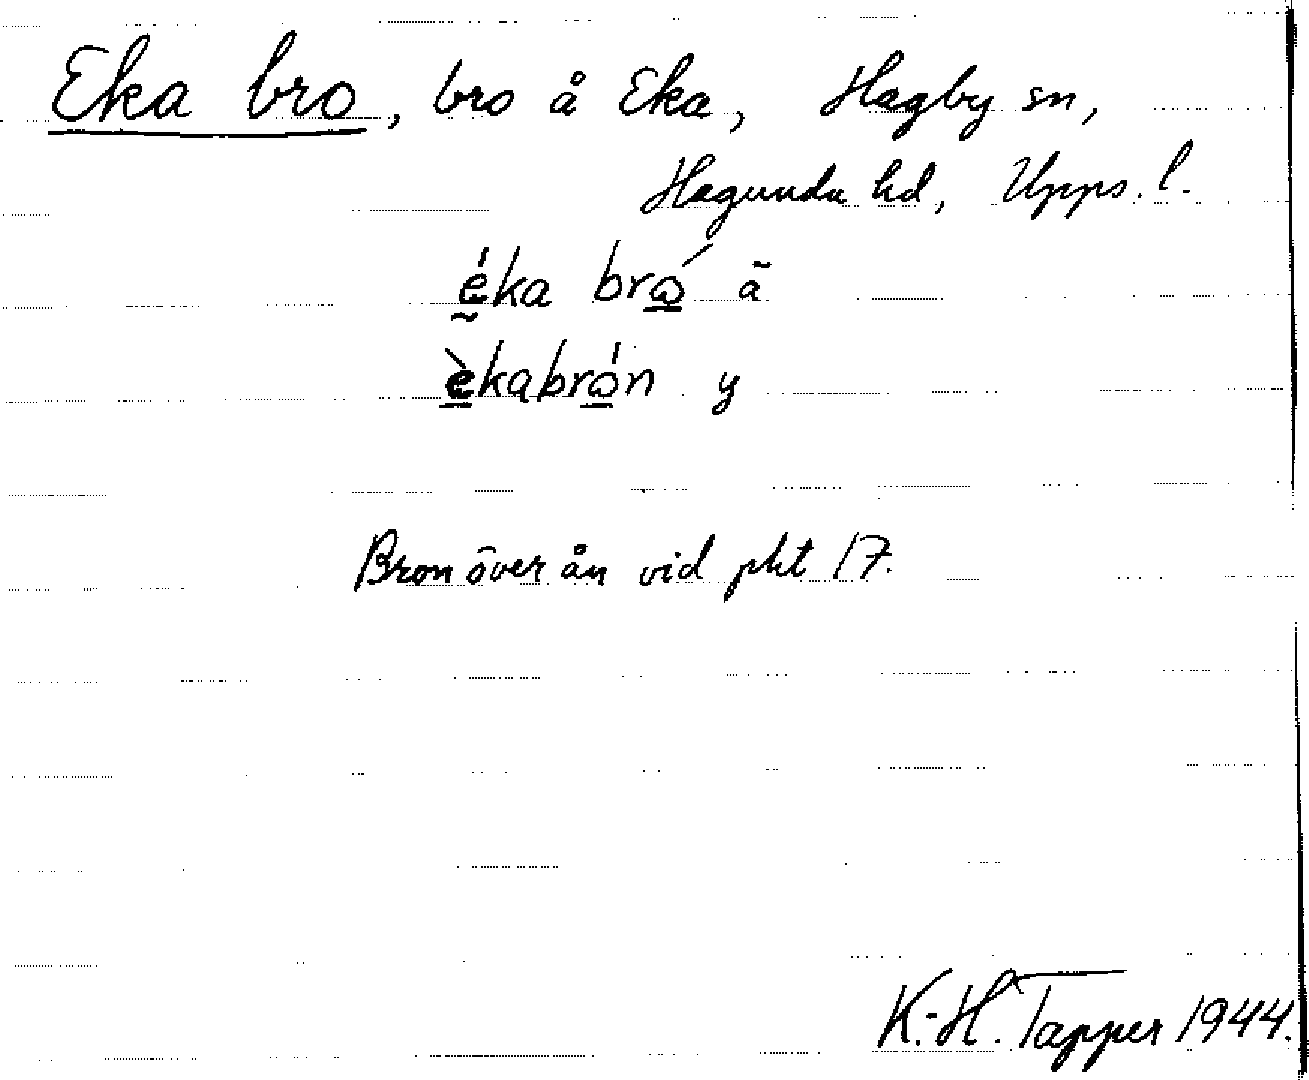 Eka bro, bro å Eka, Hagby sn,
Hagunda hd, Upps. l.
ḛ́ka bró̲̲ ã
è̲kąbró̲n y
Bron över ån vid pkt 17.
K.-H. Tapper 1944.